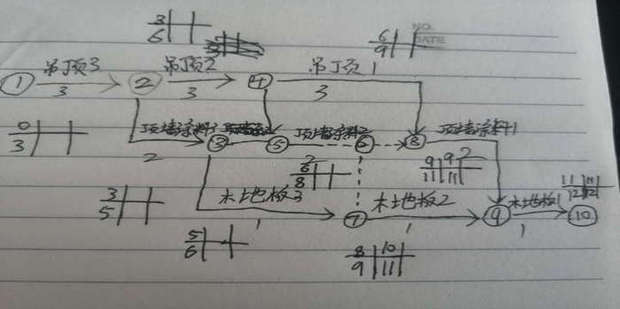 3
6
6
9
NO.
DATE
① 吊顶3 ② 吊顶2 ④ 吊顶1
3 3 3
0
3
顶墙涂料3 ③ ⑤ 顶墙涂料2 ⑥ ⑧ 顶墙涂料1
2 2 2
6
8
9 9
11 11
3
5
木地板3 ⑦ 木地板2 ⑨ 木地板1 ⑩
1 1 1
11 11
12 12
5
6
8 10
9 11